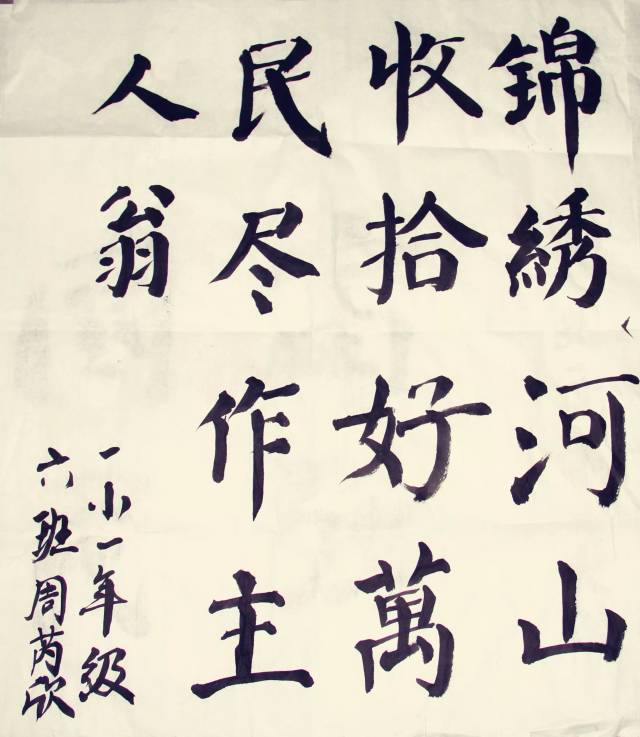 锦綉河山
收拾好萬
民尽作主
人翁
一小一年级
六班周芮欣